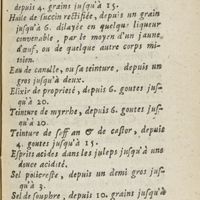 depuis 4. grains jusqu'à 15.
Huile de succin rectifiée, depuis un grain
jusqu'à 6. dilayée en quelque liqueur
convenable, par le moyen d'un jaune
d'œuf, ou de quelque autre corps mi-
tien.
Eau de canelle, ou sa teinture, depuis un
gros jusqu'à deux.
Elixir de proprieté, depuis 6. goutes jus-
qu'à 20.
Teinture de myrrhe, depuis 6. goutes jus-
qu'à 20.
Teinture de saffran & de castor, depuis
4. goutes jusqu'à 15.
Esprits acides dans les juleps jusqu'à une
douce acidité.
Sel policreste, depuis un demi gros jus-
qu'à 3.
Sel de souphre, depuis 10. grains jusqu'à